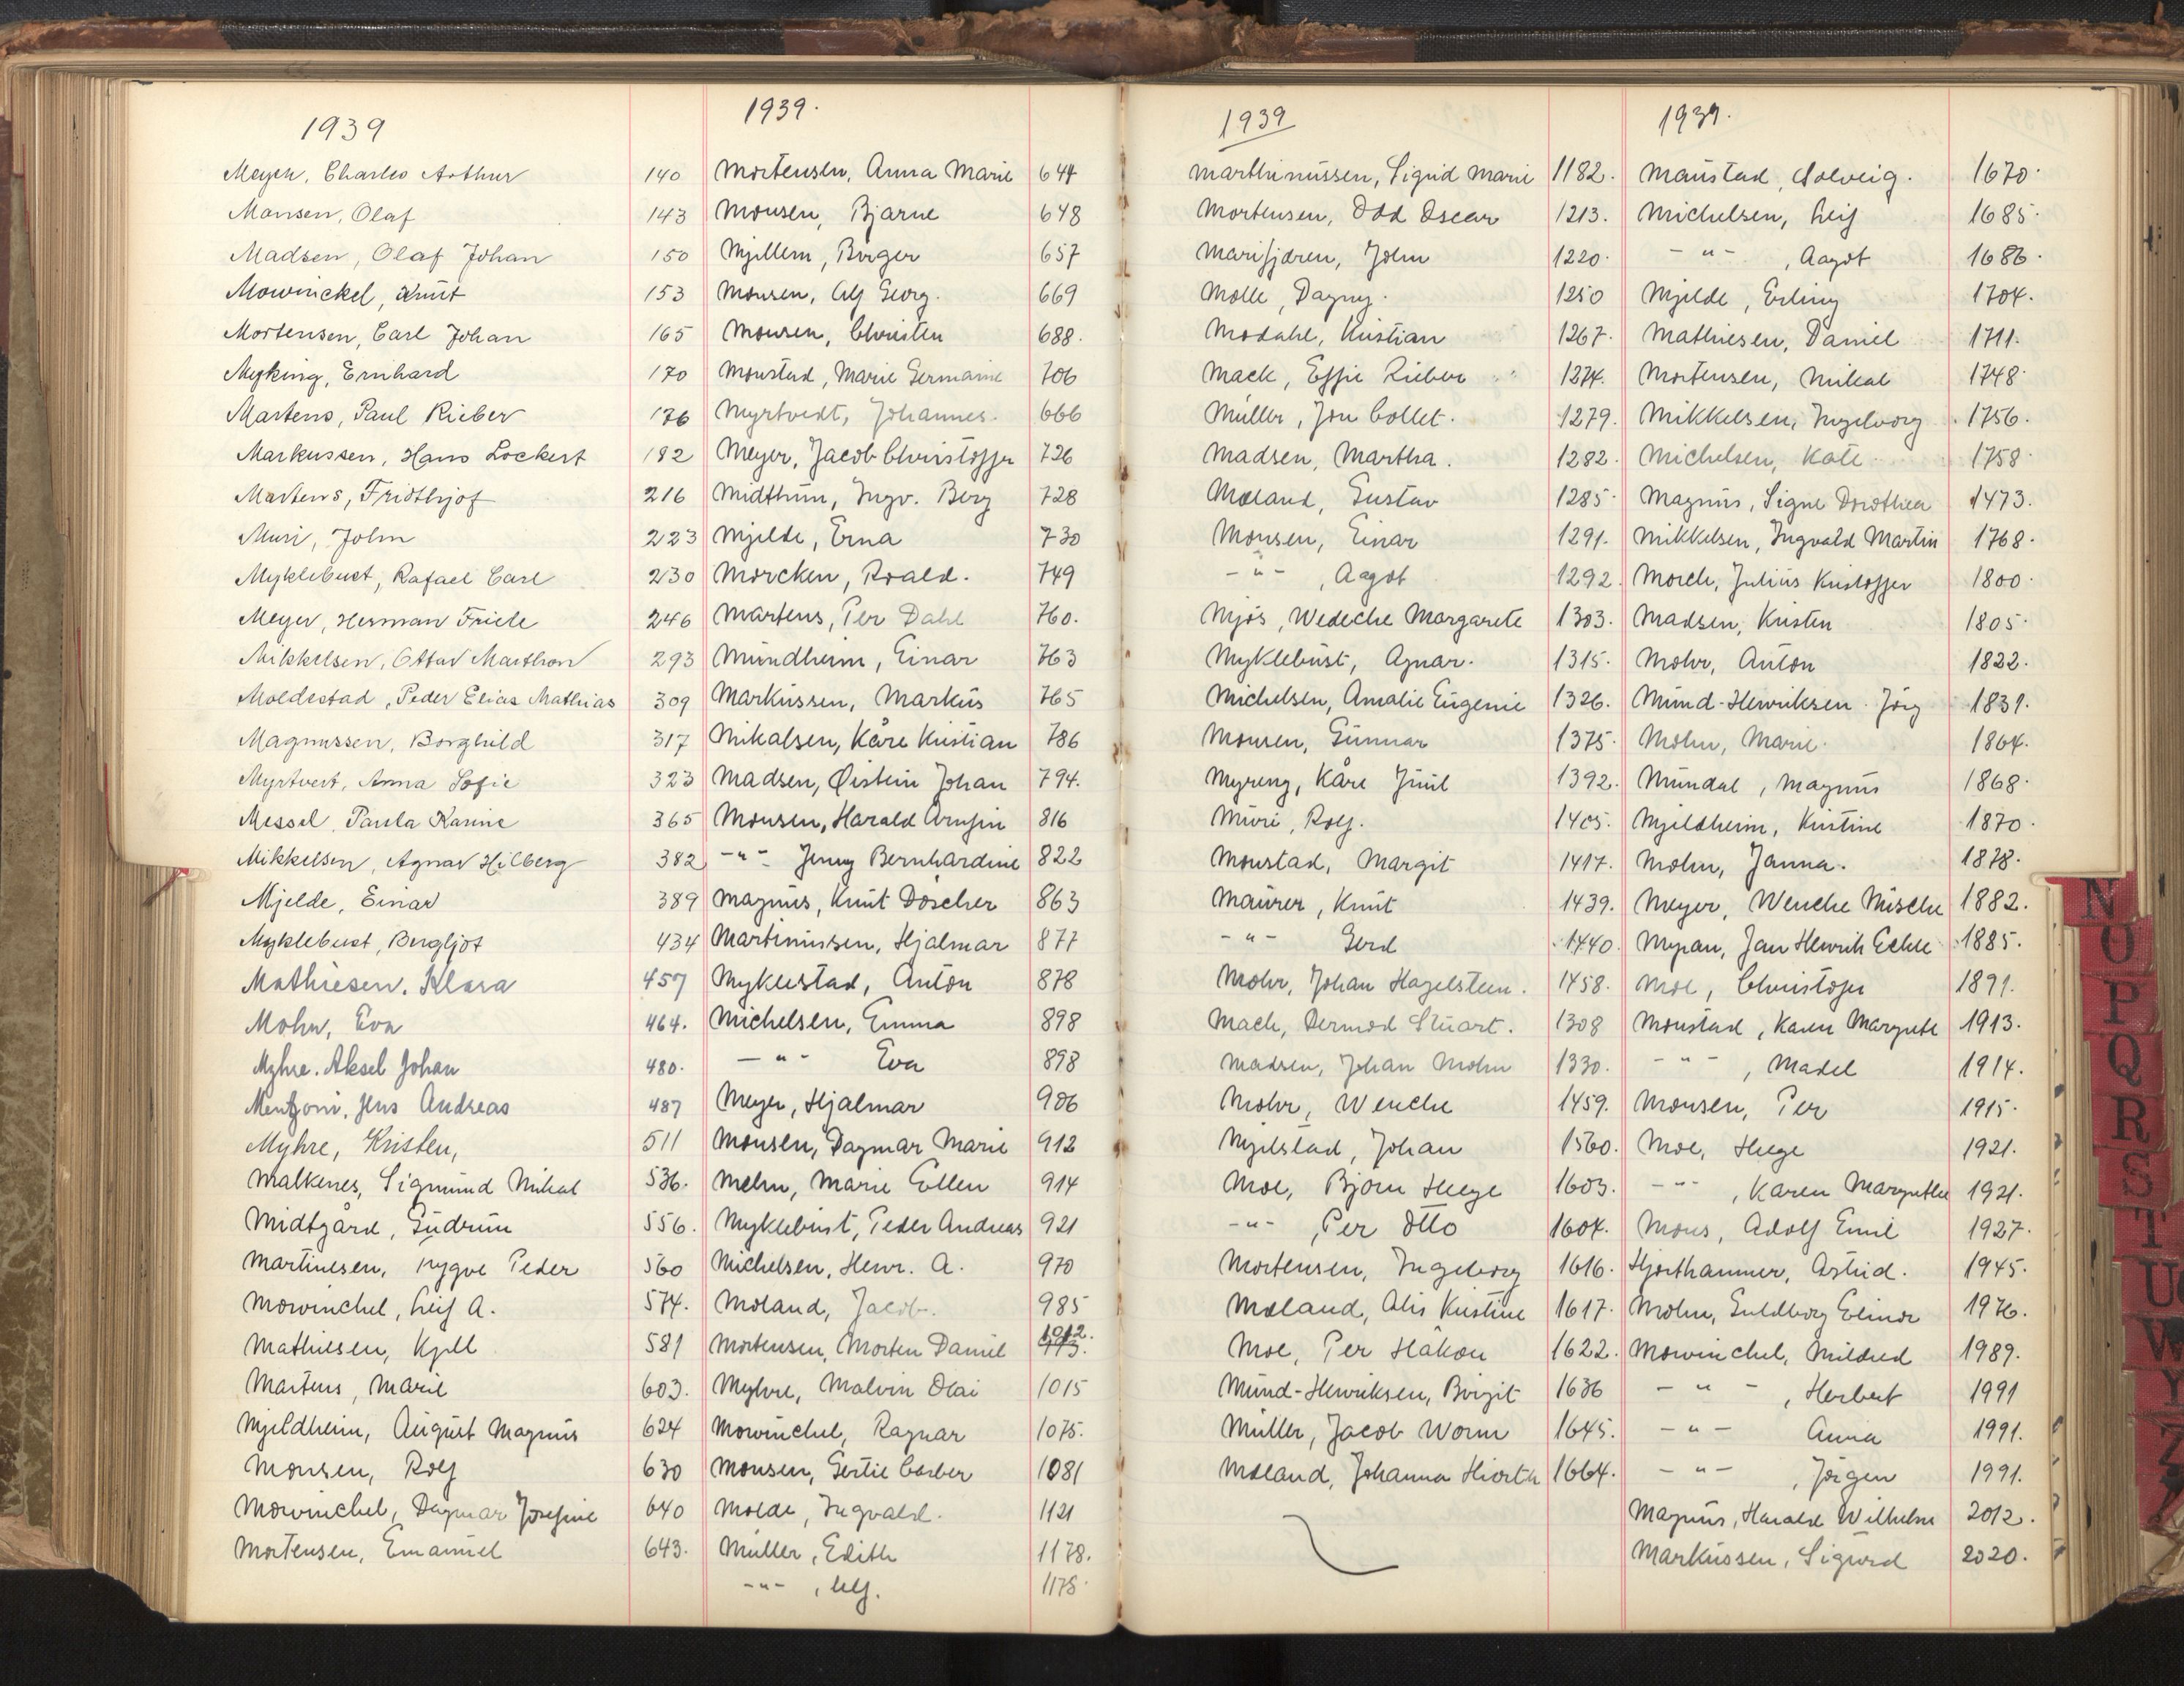 1939
Meyer, Charles Arthur 140
Monsen, Olaf 143
Madsen, Olaf Johan 150
Mowinckel, Knut 153
Mortensen, Carl Johan 165
Myking, Ernhard 170
Martens, Paul Rieber 176
Markussen, Hans Lockert 182
Martens, Fridthjof 216
Muri, John 223
Myklebust, Rafael Carl 230
Meyer, Herman Friele 246
Mikkelsen, Ottar Marthon 293
Moldestad, Peder Elias Mathias 309
Magnussen, Borghild 317
Myrtvedt, Anna Sofie 323
Messel, Paula Karine 365
Mikkelsen, Agnar Hilberg 382
Mjelde, Einar 389
Myklebust, Bergljot 434
Mathiesen, Klara 457
Mohn, Eva 464.
Myhre. Aksel Johan 480.
Mentzoni, Jens Andreas 487
Myhre, Kristen, 511
Malkenes, Sigmund Mikal 536.
Midtgård, Gudrun 556.
Martinesen, Trygve Peder 560
Mowinckel, Leif A. 574.
Mathiesen, Kjell 581
Martens, Marie 603.
Mjeldheim, August Magnus 624
Monsen, Rolf 630
Mowinckel, Dagmar Josefine 640
Mortensen, Emanuel 643.
1939.
Mortensen, Anna Marie 644
Monsen, Bjarne 648
Mjellem, Birger 657
Monsen, Alf Georg. 669
Monsen, Christen 688.
Monstad, Marie Germaine 706
Myrtvedt, Johannes. 666
Meyer, Jacob Christoffer 726
Midtthun, Ingv. Berg 728
Mjelde, Erna 730
Morcken, Roald. 749
Martens, Per Dahl 760.
Mundheim, Einar 763
Markussen, Markus 765
Mikalsen, Kåre Kristian 786
Madsen, Øistein Johan 794.
Monsen, Harald Arnfin 816
-"- Jenny Bernhardine 822
Magnus, Knut Döscher 863
Martinussen, Hjalmar 877
Myklestad, Anton 878
Michelsen, Emma 898
-"- Eva 898
Meyer, Hjalmar 906
Monsen, Dagmar Marie 912
Mehn, Marie Ellen 914
Myklebust, Peder Andreas 921
Michelsen, Henr. A. 970
Moland, Jacob. 985
Mortensen, Morten Daniel 1012.
Myhre, Malvin Olai 1015
Mowinckel, Ragnar 1075.
Monsen, Gertie Corber 1081
Molde, Ingvald. 1121
Müller, Edith 1178.
-"- , Alf. 1178.
1939
Marthinussen, Sigrid Marie 1182.
Mortensen, Odd Oscar 1213.
Marifjæren, John 1220.
Molle, Dagny. 1250
Modahl, Kristian 1267.
Mack, Effie Rieber 1274.
Müller, Jon Collet. 1279.
Madsen, Martha. 1282.
Mæland, Gustav 1285.
Monsen, Einar 1291.
-"- , Aagot 1292.
Mjøs, Wedeche Margarete 1303.
Myklebust, Agnar. 1315.
Michelsen, Amalie Eugenie 1326.
Monsen, Gunnar 1375.
Myreng, Kåre Juul 1392.
Muri, Rolf. 1405.
Monstad, Margit 1417.
Maurer, Knut 1439.
-"- Gerd 1440.
Mohr, Johan Hagelsteen. 1458.
Mack, Dermod Stuart. 1308
Madsen, Johan Mohn 1330.
Mohr, Wenche 1459.
Mjelstad, Johan 1560.
Moe, Bjørn Hege 1603.
-"- , Per Otto 1604.
Mortensen, Ingeborg 1616.
Mæland, Alis Kristine 1617.
Moe, Per Håkon 1622.
Mund-Henriksen, Birgit 1636
Müller, Jacob Worm 1645.
Mæland, Johanna Hiorth 1664.
1939.
Maustad, Solveig. 1670.
Michelsen, Leif 1685.
-"- , Aagot 1686.
Mjelde, Erling 1704.
Mathiesen, Daniel 1711.
Mortensen, Mikal 1748.
Mikkelsen, Ingeborg 1756.
Michelsen, Kate 1758.
Magnus, Signe Dorothea 1473.
Mikkelsen, Ingvald Martin 1768.
Morch, Julius Kristoffer 1800.
Madsen, Kristen 1805.
Mohr, Anton 1822.
Mund-Henriksen. Jörg 1839.
Mohn, Marie. 1864.
Mundal, Magnus 1868.
Mjeldheim, Kristine 1870.
Mohn, Janna. 1878.
Meyer, Wenche Mische 1882.
Myran, Jan Henrik 1885.
Moe, Christofer 1891.
Monstad, Karen Margrete 1913.
-"- , Madel 1914.
Monsen, Per 1915.
Moe, Hege 1921.
-"- , Karen Margrethe 1921.
Mons, Adolf Emil 1927.
Hjorthammer, Astrid. 1945.
Mohn, Guldborg Elinor 1976.
Mowinckel, Mildred 1989.
-"- , Herbert 1991
-"- Anna 1991.
-"- , Jörgen 1991.
Magnus, Harald Wilhelm 2012.
Markussen, Sigurd 2020.
N
O
P
Q
R
S
T
U
W
Y
Z